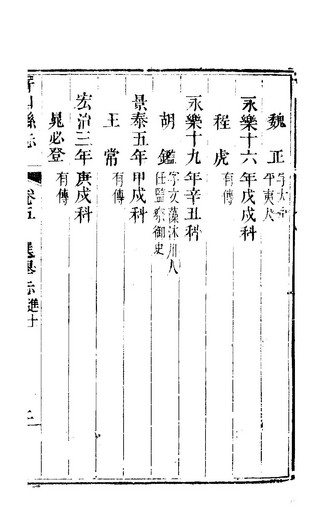 魏正
平東人
永樂十六年戊戌科
程虎 有傳
永樂十九年辛丑科
胡鑑 字文藻沐川人
任監察御史
景泰五年甲戌科
王常 有傳
宏治三年庚戌科
晁必登 有傳
屏山縣志 卷五 選舉志 進士